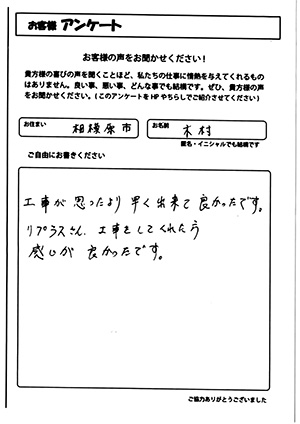 お客様 アンケート
お客様の声をお聞かせください!
貴方様の喜びの声を聞くことほど、私たちの仕事に情熱を与えてくれるもの
はありません。良い事、悪い事、どんな事でも結構です。ぜひ、貴方様の声
をお聞かせください。(このアンケートをHPやちらしでご紹介させてください)
お住まい 相模原市 お名前 木村
匿名・イニシャルでも結構です
ご自由にお書きください
工事が思ったより早く出来て良かったです。
リプラスさん、工事をしてくれた方
感じが良かったです。
ご協力ありがとうございました